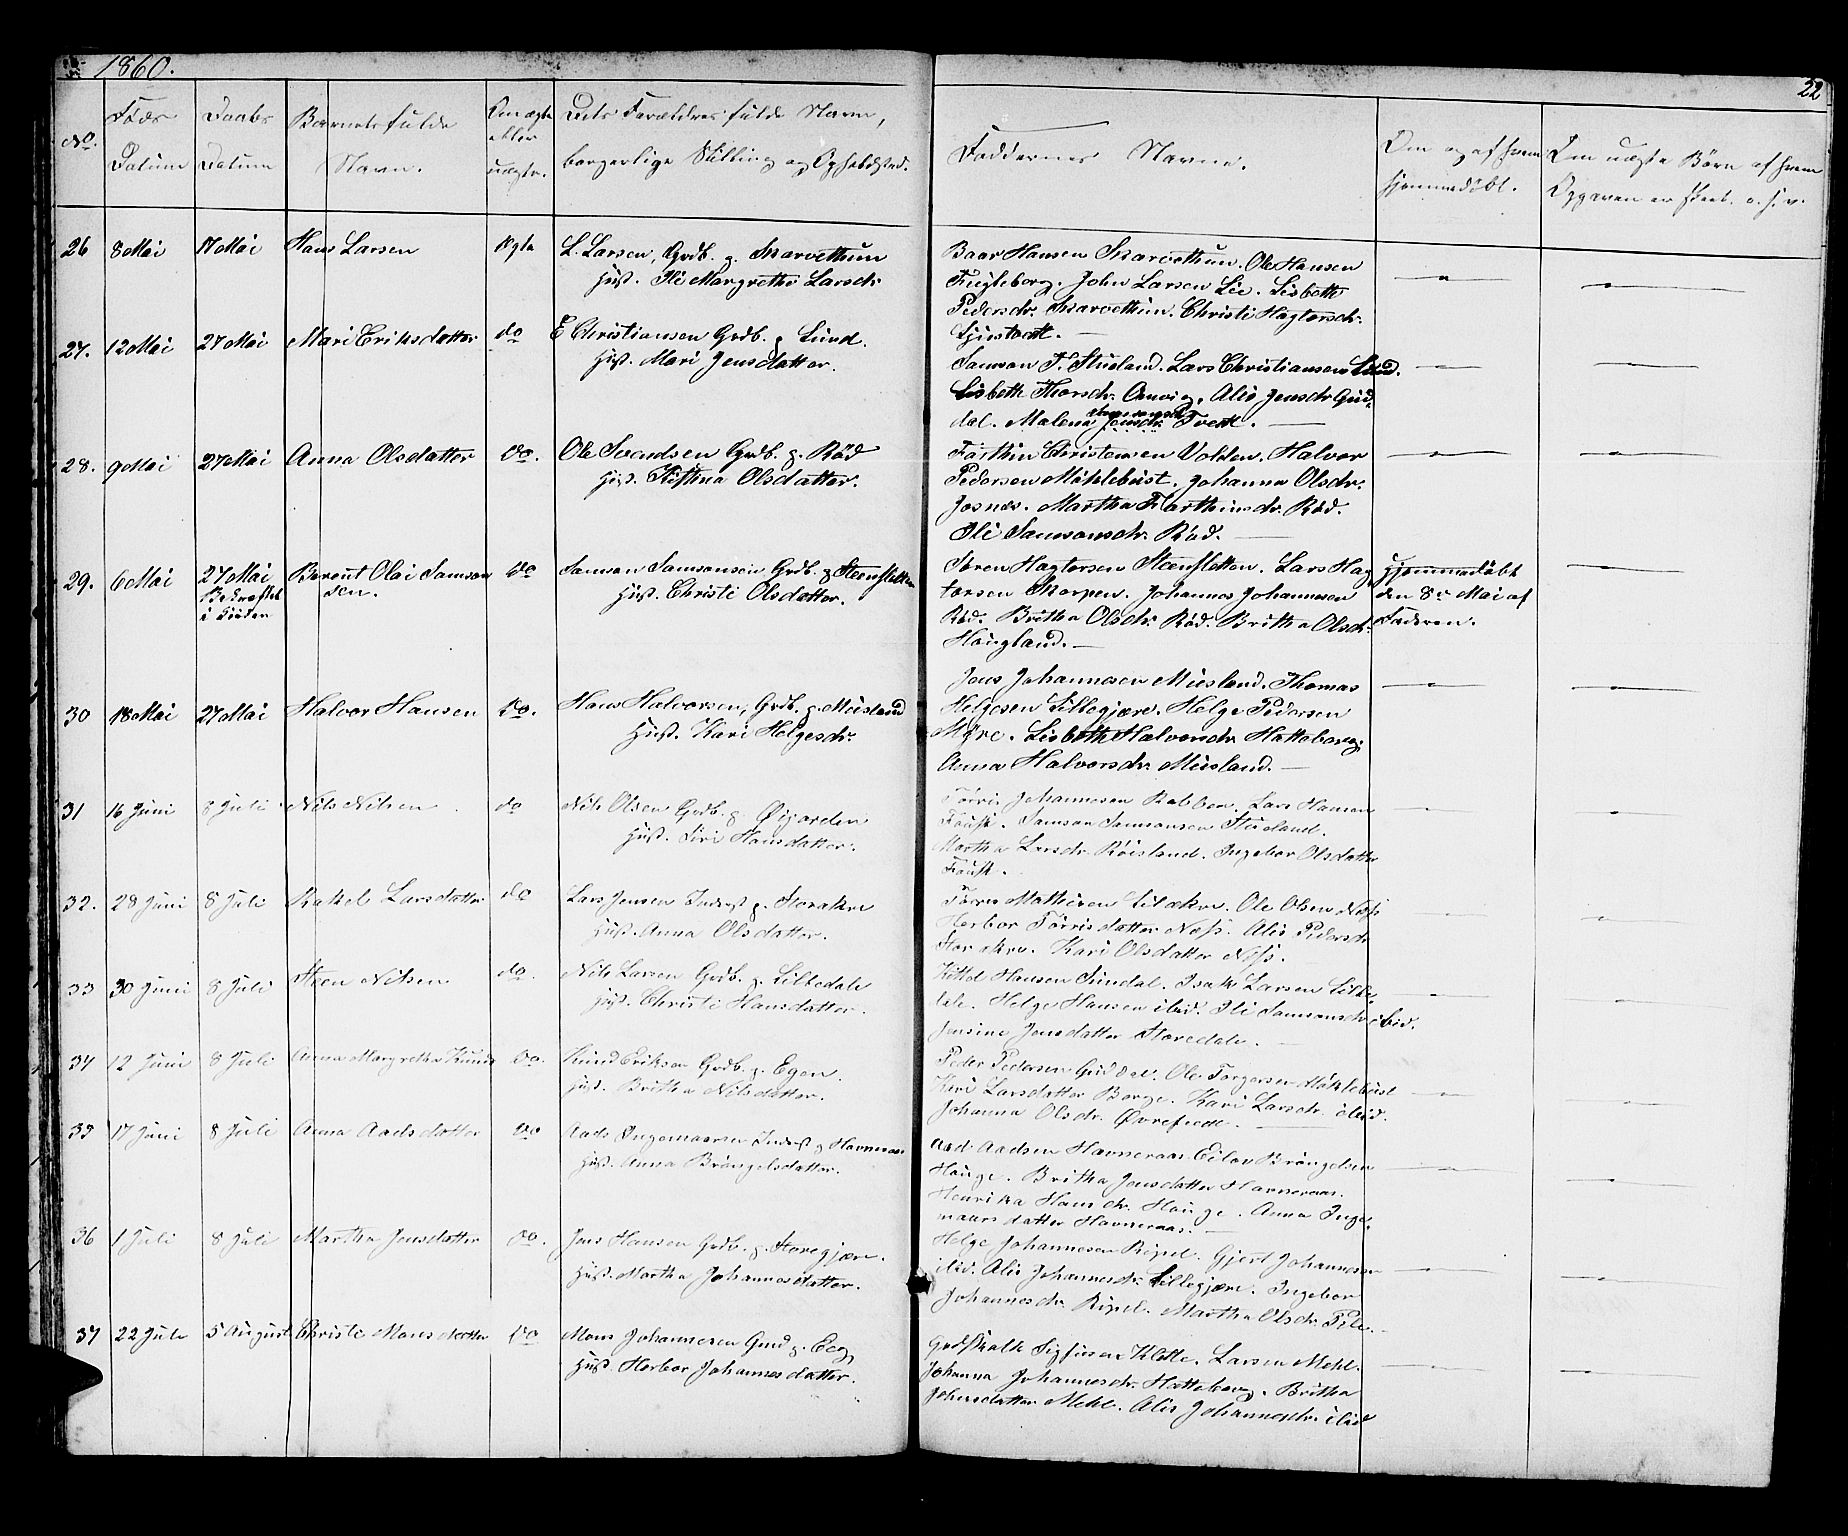 1860.
22
No.
Føds
Datum
Daabs
Datum
Barnets fulde
Navn.
Om ægte
eller
uægte.
Dets Forældres fulde Navne,
borgerlige Stilling og Opholdssted.
Faddernes Navne.
Om og af hvem
hjemmedøbt.
Om uægte Børn af hvem
Opgaven er skeet. o. s. v.
26 8 Mai 17 Mai Hans Larsen Ægte L. Larsen, Grdb. p. Skarvethun
Hust. Ili Margrethe Larsdr
Baar Hansen Skarvethun. Ole Hansen
Fugleborg. John Larsen Lie. Lisbeth
Pedersdr. Skarvethun. Christi Hagtorsdr.
27. 12 Mai 27 Mai Mari Eriksdatter do E Christiansen Grdb. p. Lund.
Hust. Mari Jensdatter.
Samson T. Stueland. Lars Christiansen Lund.
Lisbeth Thorsdr. Omvig. Alis Jensdr Gud-
dal. Malena Tvete.
28. 9 Mai 27 Mai Anna Olsdatter do. Ole Svendsen Grdb. p. Rød
Hust. Kistina Olsdatter.
Farthin Christensen Volden. Halvor
Pedersen Møklebust. Johanna Olsdr.
Josnæs. Martha Farthinsdr. Rød.
Ili Samsonsdr. Rød.
29. 6 Mai 27 Mai Berent Olai Samson do Samson Samsonsen Grdb. p Steensletten
Bekræftet
i Kirken
sen.
Hust. Christi Olsdatter.
Søren Hagtorsen Steensletten. Lars Hag
torsen Skorpen. Johannes Johannesen
Rød. Britha Olsdr. Rød. Britha Olsdr.
Hougland.
Hjemmedøbt
den 8de Mai af
Faderen.
30 18 Mai 27 Mai Halvor Hansen do. Hans Halvorsen, Grdb. p. Musland
Hust. Kari Helgesdr.
Jens Johannesen Musland. Thomas
Helgesen Lillegjære. Helge Pedersen
Myre. Lisbeth Halvorsdr. Hatteberg.
Anna Halvorsdr. Musland.
31 16 Juni 8 Juli Nils Nilsen do Nils Olsen Grdb. p. Øigarden
Hust. Siri Hansdatter.
Tørris Johannesen Rabben. Lars Hansen
Foust. Samson Samsonsen Stueland.
Martha Larsdr. Røisland. Ingebor Olsdatter
Foust.
32. 28 Juni 8 Juli Rakel Larsdatter do Lars Jensen Inderst p. Storakre
Hust. Anna Olsdatter.
Tørris Mathisen Lilækre. Ole Olsen Næss
Herbor Tørrisdatter Næss. Alis Pedersdr
Storakre. Kari Olsdatter Næss.
33 30 Juni 8 Juli Steen Nilsen do. Nils Larsen Grdb. p. Lilledale
Hust. Christi Hansdatter.
Kittel Hansen Sundal. Isak Larsen Lille-
dale. Helge Hansen ibid. Ili Samsonsdr ibid.
Jensine Jensdatter Storedale.
34 12 Juni 8 Juli Anna Margretha Knuds do. Knud Eriksen Grdb. p. Egen.
Hust. Britha Nilsdatter.
Peder Pedersen Guddal. Ole Torgersen Møklebust
Kari Larsdatter Berge. Kari Larsdr. ibid.
Johanna Olsdr. Øvrefiett.
35 17 Juni 8 Juli Anna Aadsdatter do Aads Ingemaarsen Inderst p Havneraas
Hust. Anna Bryngelsdatter.
Aad Aadsen Havneraas. Eilov Bryngelsen
Hauge. Britha Jensdatter Havneraas.
Henrika Hansdr. Hauge. Anna Inge-
maarsdatter Havneraas.
36 1 Juli 8 Juli Martha Jensdatter do. Jens Hansen Grdb. p. Storegjære.
Hust. Martha Johannesdatter.
Helge Johannesen Ripel. Gjert Johannesen
ibid. Alis Johannesdr. Lillegjære. Ingebor
Johannesdr. Ripel. Martha Olsdr. Tele.
37 22 Juli 5 August Christi Monsdatter do Mons Johannesen Gmd p. Eeg,
Hust. Herbor Johannesdatter.
Godskalk Sigfusen Klette. Larsen Mehl.
Johanna Johannesdr. Hatteberg. Britha
Johannsdatter Mehl. Alis Johannesdr. ibid